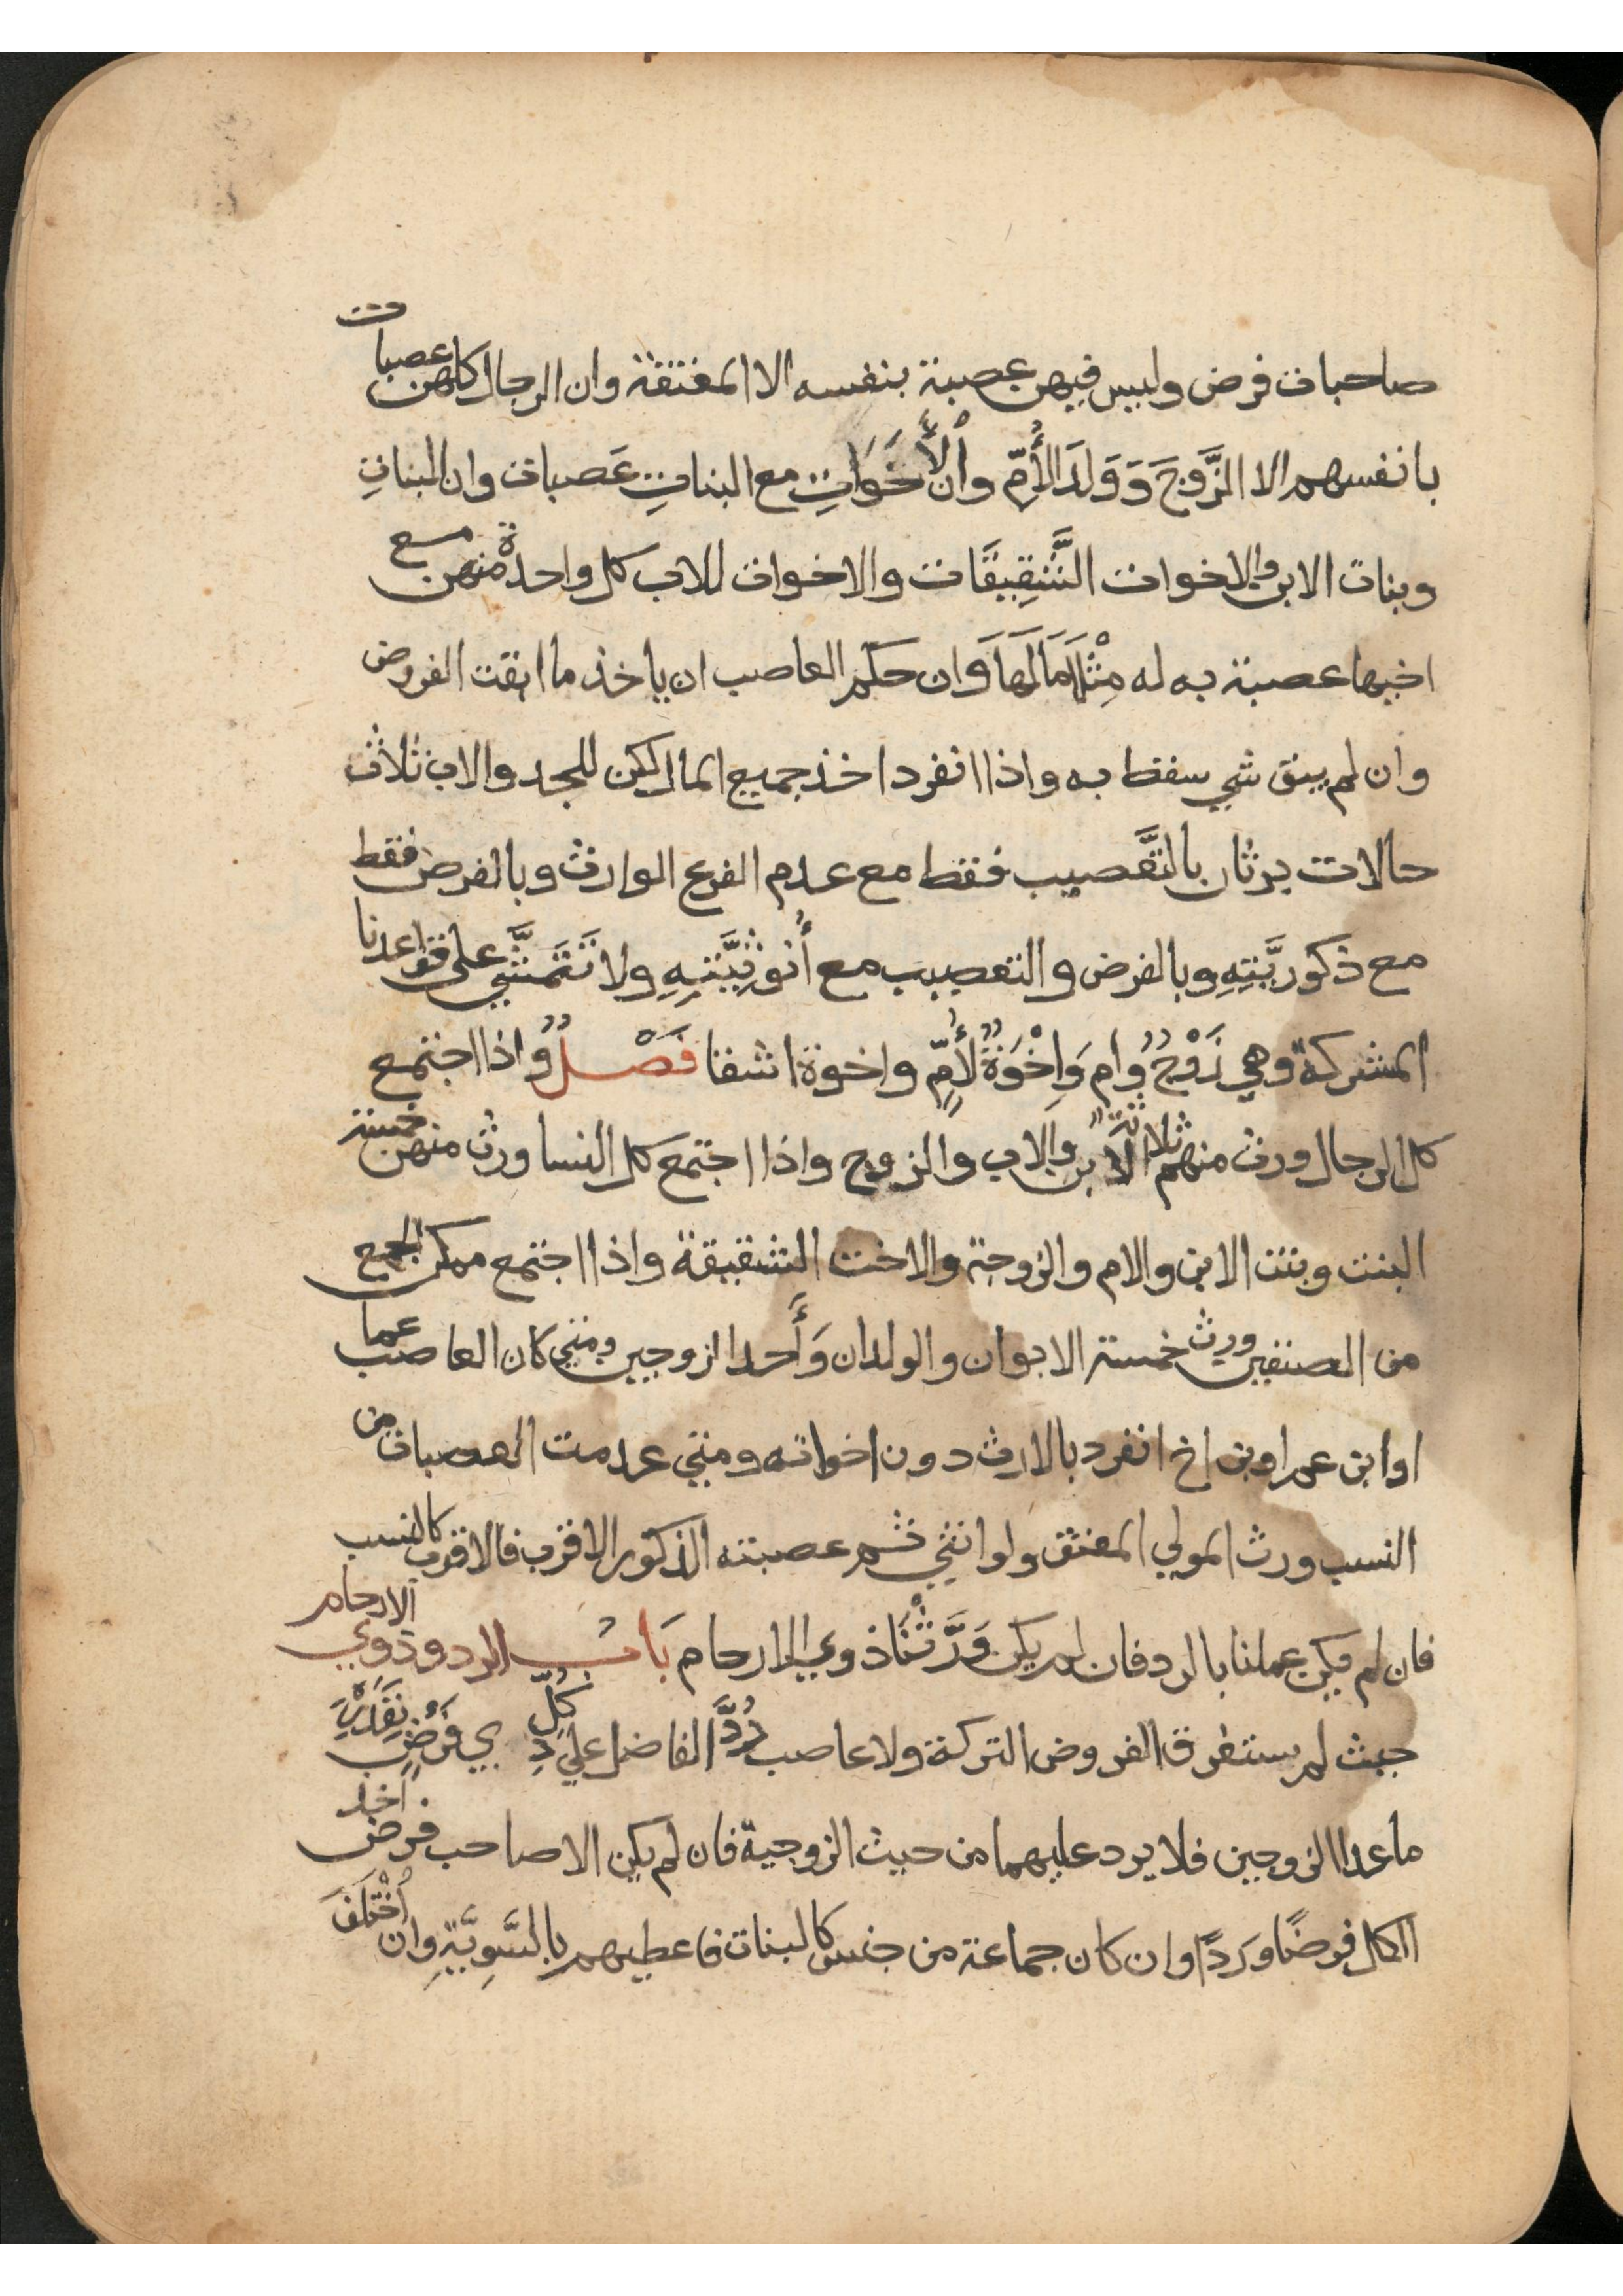 صاحبات فرض وليس فيهن عصبة بنفسه الا المعتقة وان الرجال كلهن عصبات
بانفسهم الا الزَّوجَ وَوَلَدَ الأُمِّ وأن الأَخَوَاتِ مع البناتِ عَصبات وان البناتِ
وبنات الابن والاخوات الشَّقِيقَات والاخوات للاب كل واحدة منهن مع
اخيها عصبة به له مِثْلَا مَا لَهَا وَان حكم العاصب ان ياخذ ما ابقت الفروض
وان لم يبق شي سقط به واذا انفرد اخذ جميع المال لكن للجد والاب ثلاث
حالات يرثان بالتَّعصيب فقط مع عدم الفرع الوارث وبالفرض فقط
مع ذكوريَّتِهِ وبالفرض والتعصيب مع أُنوثِيَّتِهِ ولا تَتَمَشَّي على قواعدنا
المشركة وهي زَوْجٌ وُام وَاِخْوَةٌ لأُمٍّ واخوة اشقا فَصْلٌ واذا اجتمع
كل الرجال ورث منهم ثلاثة الابن والاب والزوج واذا اجتمع كل النسا ورث منهن خمسة
البنت وبنت الابن والام والزوجة والاخت الشقيقة واذا اجتمع ممكن الجمع
من الصنفين ورث خمسة الابوان والولدان وَأَحد الزوجين ومتي كان العاصب عما
او ابن عم او بن اخ انفرد بالارث دون اخواته ومتي عدمت العصبات من
النسب ورث المولي المعتق ولو انثي ثم عصبته الذكور الاقرب فالاقرب كالنسب
فان لم يكن عملنا بالرد فان لم يكن وَرَّثْنَا ذوي الارحام بَاب الرد وذوي الارحام
حيث لم يستغرق الفروض التركة ولا عاصب رُدَّ الفاضل علي كُلِّ ذِي فَرْضٍ بِقَدْرِهِ
ما عدا الزوجين فلا يرد عليهما من حيث الزوجية فان لم يكن الا صاحب فرض اخذ
الكل فرضًا ورَدًّا وان كان جماعة من جنس كالبنات فاعطيهم بالسَّوِيَّةِ وان اُخْتَلَفَ